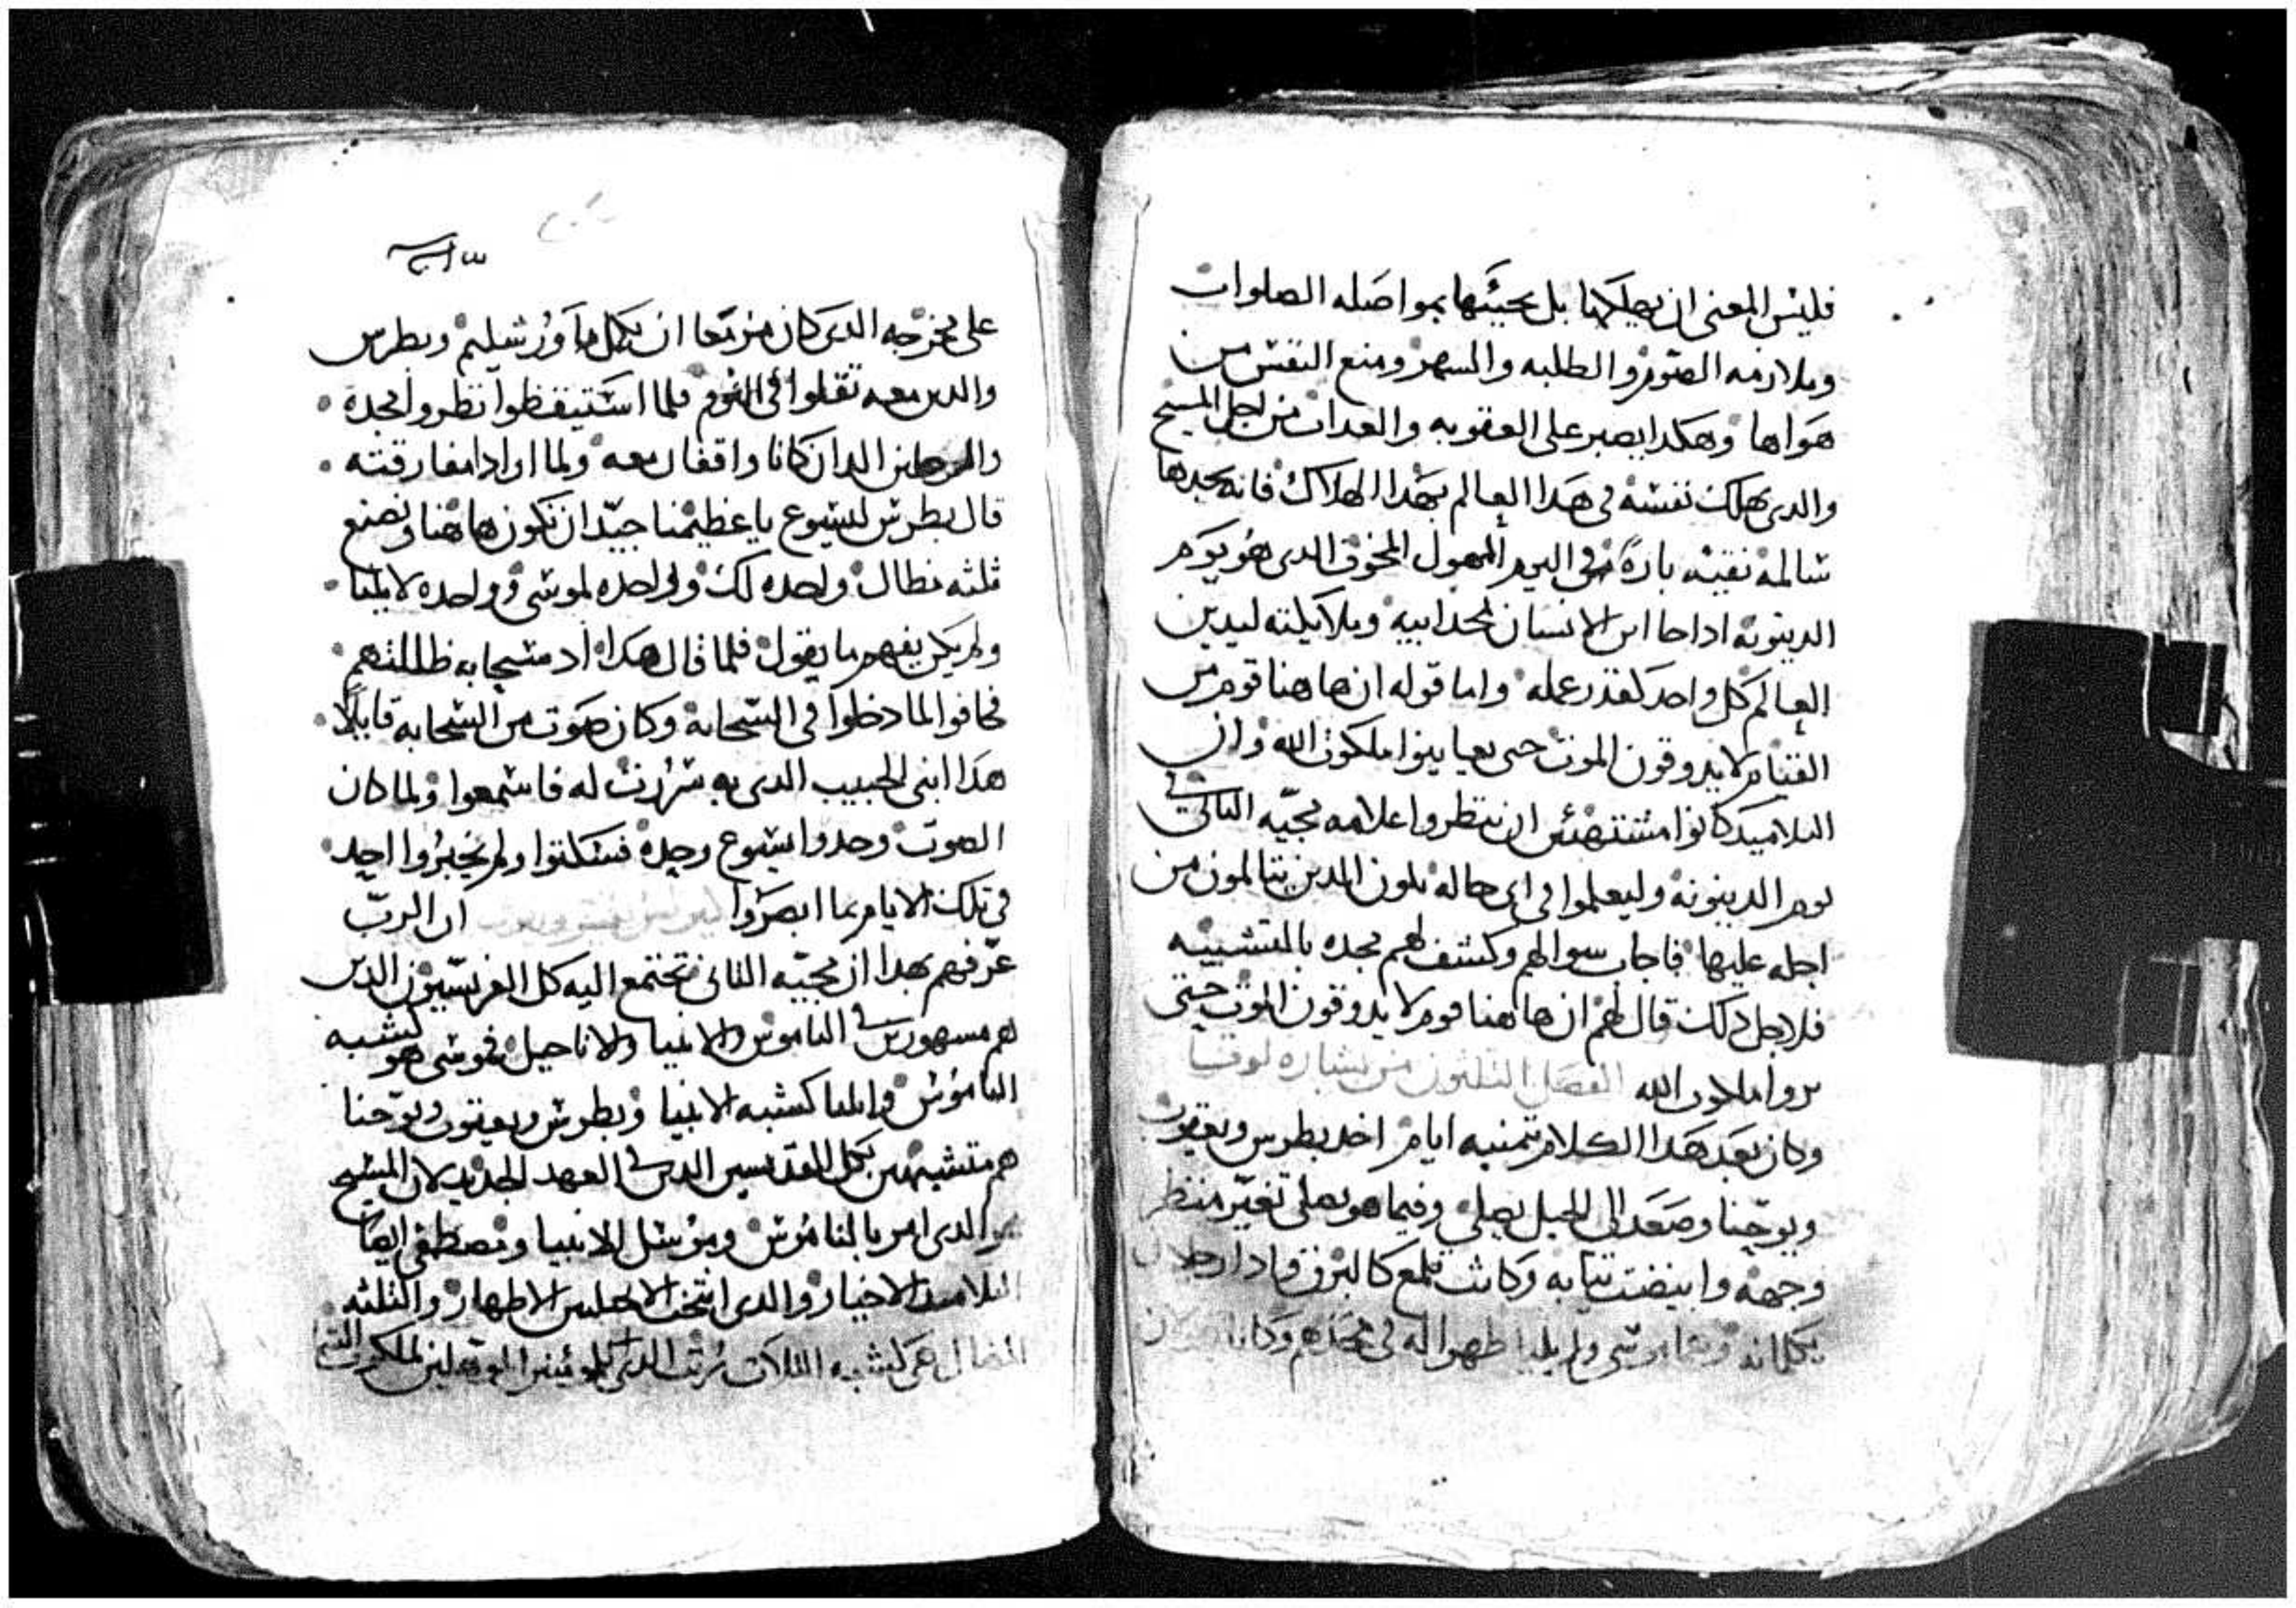 فليس المعنى ان يهلكها بل يحييها بمواصله الصلوات
وملازمه الصوم والطلبه والسهر ومنع النفس من
هواها وهكدا يصبر على العقوبه والعداب من اجل المسيح
والدى يهلك نفسه فى هدا العالم بهدا الهلاك فانه يجدها
سالمه نقيه باره فى اليوم المهول المخوف الدى هو يوم
الدينونه ادا جا ابن الانسان بمجد ابيه وملايكته ليدين
العالم كل واحد كقدر عمله واما قوله ان هاهنا قوم من
القيام لا يدوقون الموت حتى يعاينوا ملكوت الله وان
التلاميد كانوا مشتهئين ان ينظروا علامه مجيّه التانى فى
يوم الدينونه وليعلموا فى اى حاله يكون الدين يتالمون من
اجله عليها فاجاب سوالهم وكشف لهم مجده بالتشبيه
فلاجل دلك قال لهم ان هاهنا قوم لا يدوقون الموت حتى
يروا ملكوت الله الفصل الثلثون من بشاره لوقا
وكان بعد هدا الكلام بتمنيه ايام اخد بطرس ويعقوب
ويوحنا وصعد الى الجبل يصلى وفيما هو يصلى تغيّر منظر
وجهه وابيضت تيابه وكانت تلمع كالبرق وادا رجلان
يكلمانه وهما موسى وايليا ظهرا له فى مجدهم وكانا
على مخرجه الدى كان مزمعا ان يكمل باورشليم وبطرس
والدين معه تقلوا فى النوم فلما استيقظوا نظروا مجده
والرجلين الدان كانا واقفان معه ولما ارادا مفارقته
قال بطرس ليسوع يا عظيمنا جيّد ان نكون هاهنا ونصنع
ثلثه مظال واحده لك وواحده لموسى وواحده لايليا
ولم يكن يفهم ما يقول فلما قال هكدا اد سحابه ظللتهم
فخافوا لما دخلوا فى السحابه وكان صوت من السحابه قايلًا
هدا ابنى الحبيب الدى به سررت له فاسمعوا ولما كان
الصوت وجدوا يسوع وحده فسكتوا ولم يخبروا احد
فى تلك الايام بما ابصروا ان الربّ
عرّفهم بهدا ان مجيّه التانى تجتمع اليه كل القديسين الدين
هم مشهورين فى الناموس والانبيا والاناجيل فموسى هو كشبه
الناموس وايليا كشبه الانبيا وبطرس ويعقوب ويوحنا
هم متشبهين بكل القديسين الدين فى العهد الجديد لان المسيح
هو الدى امر بالناموس ومرسل الانبيا ومصطفى ايضا
التلاميد الاخيار والدى انتخب الانجيليين الاطهار والثلثه
المظال هى كشبه التلات رتب